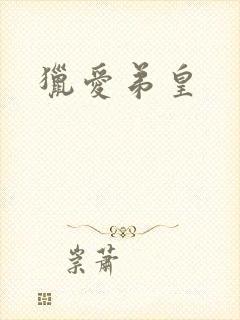 獵愛弟皇
崇蕭